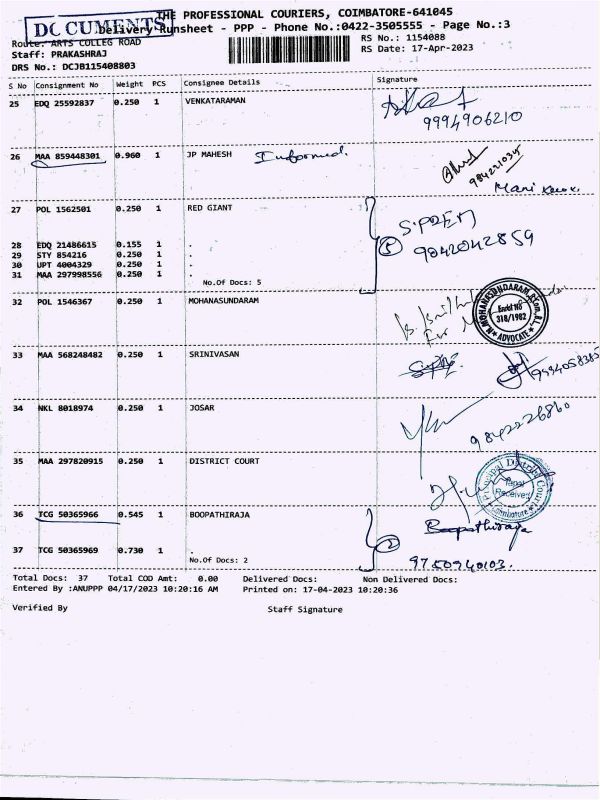 DOCUMENTS
THE PROFESSIONAL COURIERS, COIMBATORE-641045
Delivery Runsheet - PPP - Phone No.:0422-3505555 - Page No.:3
Route: ARTS COLLEG ROAD
RS No.: 1154088
Staff: PRAKASHRAJ
RS Date: 17-Apr-2023
DRS No.: DCJB115408803
S No Consignment No Weight PCS Consignee Details Signature
25 EDQ 25592837 0.250 1 VENKATARAMAN
9994906210
26 MAA 859448301 0.960 1 JP MAHESH Informed.
27 POL 1562501 0.250 1 RED GIANT
28 EDQ 21486615 0.155 1 .
5 9042042859
29 STY 854216 0.250 1 .
30 UPT 4004329 0.250 1 .
31 MAA 297998556 0.250 1 .
No.Of Docs: 5
32 POL 1546367 0.250 1 MOHANASUNDARAM
N. MOHANASUNDARAM, B.Com., B.L.,
Enrol No
318/1982
ADVOCATE
33 MAA 568248482 0.250 1 SRINIVASAN
9994058385
34 NKL 8018974 0.250 1 JOSAR
9842226860
35 MAA 297820915 0.250 1 DISTRICT COURT
Principal District Court
Tapal
Received
Coimbatore
36 TCG 50365966 0.545 1 BOOPATHIRAJA
Boopathiraja
2
37 TCG 50365969 0.730 1 .
9750940103.
No.Of Docs: 2
Total Docs: 37 Total COD Amt: 0.00 Delivered Docs: Non Delivered Docs:
Entered By :ANUPPP 04/17/2023 10:20:16 AM Printed on: 17-04-2023 10:20:36
Verified By Staff Signature